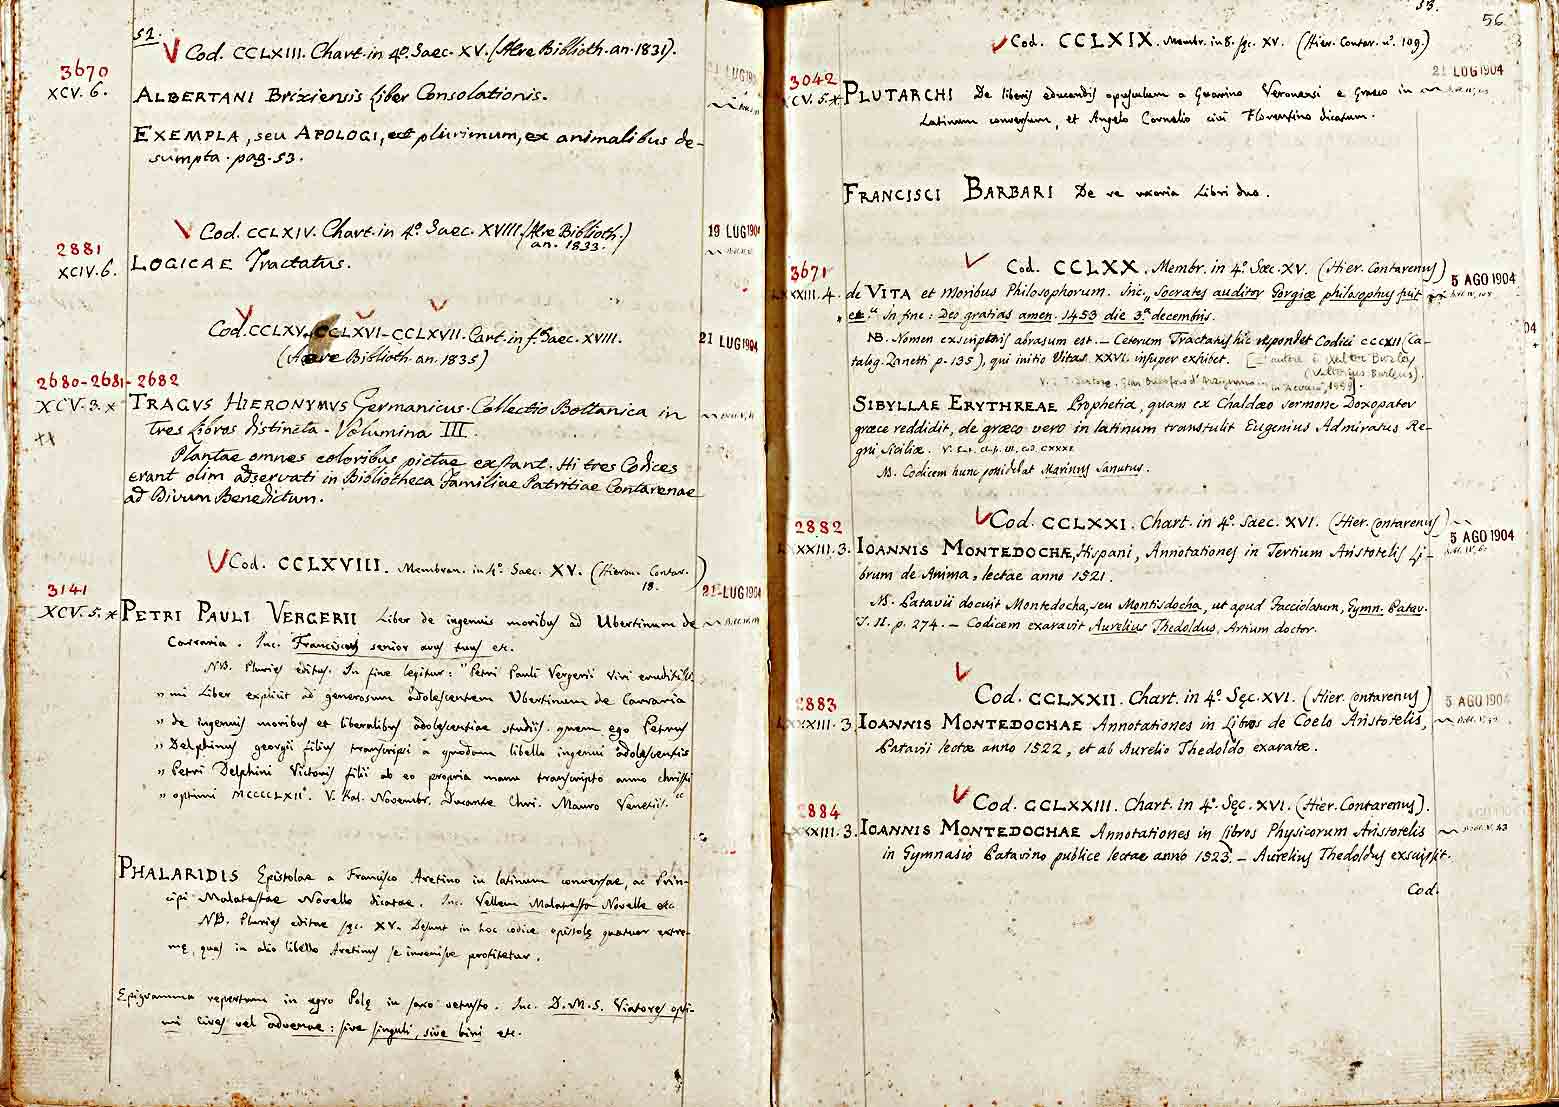 52.
Cod. CCLXIII. Chart. in 4.º Saec. XV. (Alre Biblioth. an. 1831).
3670
XCV. 6.
ALBERTANI Brixiensis Liber Consolationis.
EXEMPLA, seu APOLOGI, plurimum, ex animalibus de-
sumpta. pag. 53.
Cod. CCLXIV. Chart. in 4.º Saec. XVIII. (Alre Biblioth.
an. 1833.)
19 LUG 1904
2881
XCIV. 6.
LOGICAE Tractatus.
Cod. CCLXV. CCLXVI-CCLXVII. Cart. in f.º Saec. XVIII.
(Alre Biblioth. an. 1835)
21 LUG 1904
2680-2681-2682
XCV. 3. x
TRAGUS HIERONYMUS Germanicus. Collectio Bottanica in
tres Libros distincta - Volumina III.
Plantae omnes coloribus pictae exstant. Hi tres Codices
erant olim adservati in Bibliotheca Familiae Patritiae Contarenae
ad Divum Benedictum.
Cod. CCLXVIII. Membran. in 4º Saec. XV. (Hieron. Contar.
18.)
3141
XCV. 5. x
21-LUG 1904
PETRI PAULI VERGERII Liber de ingenuis moribus ad Ubertinum de
Carraria. Inc. Franciscus senior avus tuus etc.
NB. Pluries editus. In fine legitur: "Petri Pauli Vergerii viri eruditiss
" mi Liber explicit ad generosum adolescentem Ubertinum de Carraria
" de ingenuis moribus et liberalibus adolescentiae studiis. quem ego Petrus
" Delphinus georgii filius transcripsi a quodam libello ingenui adolescentis
" Petri Delphini Victoris filii ab eo propria manu transcripto anno christi
" optimi MCCCCLXII. V. Kal. Novembr. Ducante Chri. Mauro Venetiis."
PHALARIDIS Epistolae a Francisco Aretino in latinum conversae, ac Prin-
cipi Malatestae Novello dicatae. Inc. Vellem Malatesta Novelle etc
NB. Pluries editae sęc. XV. Desunt in hoc codice epistolę quatuor extre-
mę, quas in alio libello Aretinus se invenisse profitetur.
Epigramma repertum in agro Polę in saxo vetusto. Inc. D. M. S. Viatores opti-
mi cives vel advenae: sive singuli, sive bini etc.
53.
56
Cod. CCLXIX. Membr. in 8. sęc. XV. (Hier. Contar. nº. 109.)
3042
XCV. 5. x
21 LUG 1904
PLUTARCHI De liberis educandis opusculum a Guarino Veronensi e graeco in
Latinum conversum, et Angelo Cornelio civi Florentino dicatum.
FRANCISCI BARBARI De re uxoria Libri duo.
Cod. CCLXX. Membr. in 4º. Sæc. XV. (Hier. Contarenus)
3671
LXXXIII. 4.
5 AGO 1904
de VITA et moribus Philosophorum. Inc. „ Socrates auditor Gorgiæ philosophus fuit
etc." In fine: Deo gratias amen. 1453 die 3.ª decembris.
NB. Nomen exscriptoris abrasum est. - Ceterum Tractatus hic respondet Codici CCCXII (Ca-
talog. Zanetti p. 135), qui initio Vitas XXVI. insuper exhibet.
SIBYLLAE ERYTHREAE Prophetia, quam ex Chaldæo sermone Doxopater
græce reddidit, de græco vero in latinum transtulit Eugenius Admiratus Re-
gni Siciliæ.
NB. Codicem hunc possidebat Marinus Sanutus.
Cod. CCLXXI. Chart. in 4º. Saec. XVI. (Hier. Contarenus)
2882
LXXXIII. 3.
5 AGO 1904
IOANNIS MONTEDOCHÆ, Hispani, Annotationes in Tertium Aristotelis Li-
brum de Anima, lectae anno 1521.
NB. Patavii docuit Montedocha, seu Montisdocha, ut apud Facciolatum, Gymn. Patav.
T. II. p. 274. - Codicem exaravit Aurelius Thedoldus, Artium doctor.
Cod. CCLXXII. Chart. in 4º. Sęc. XVI. (Hier. Contarenus)
2883
LXXXIII. 3.
5 AGO 1904
IOANNIS MONTEDOCHAE Annotationes in Libros de Coelo Aristotelis,
Patavii lectæ anno 1522, et ab Aurelio Thedoldo exaratæ.
Cod. CCLXXIII. Chart. in 4º. Sęc. XVI. (Hier. Contarenus).
2884
LXXXIII. 3.
IOANNIS MONTEDOCHAE Annotationes in libros Physicorum Aristotelis
in Gymnasio Patavino publice lectae anno 1523. - Aurelius Thedoldus exscripsit.
Cod.